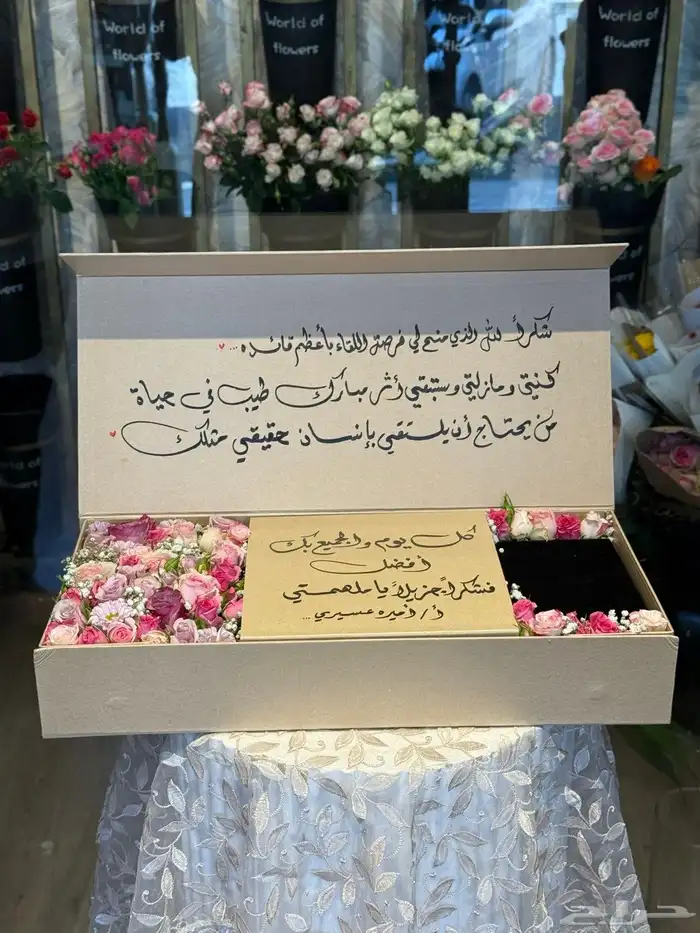 World of
flowers
World of
flowers
World of
flowers
World of
flowers
شكراً لله الذي منح لي فرصة اللقاء بأعظم قائده ...
كنتي ومازلتي وستبقي أثر مبارك طيب في حياة
من يحتاج أن يلتقي بإنسان حقيقي مثلك
كل يوم والجميع بك
أفضل
فشكراً جزيلاً يا ملهمتي
أ/ أميره عسيري ...
حراج